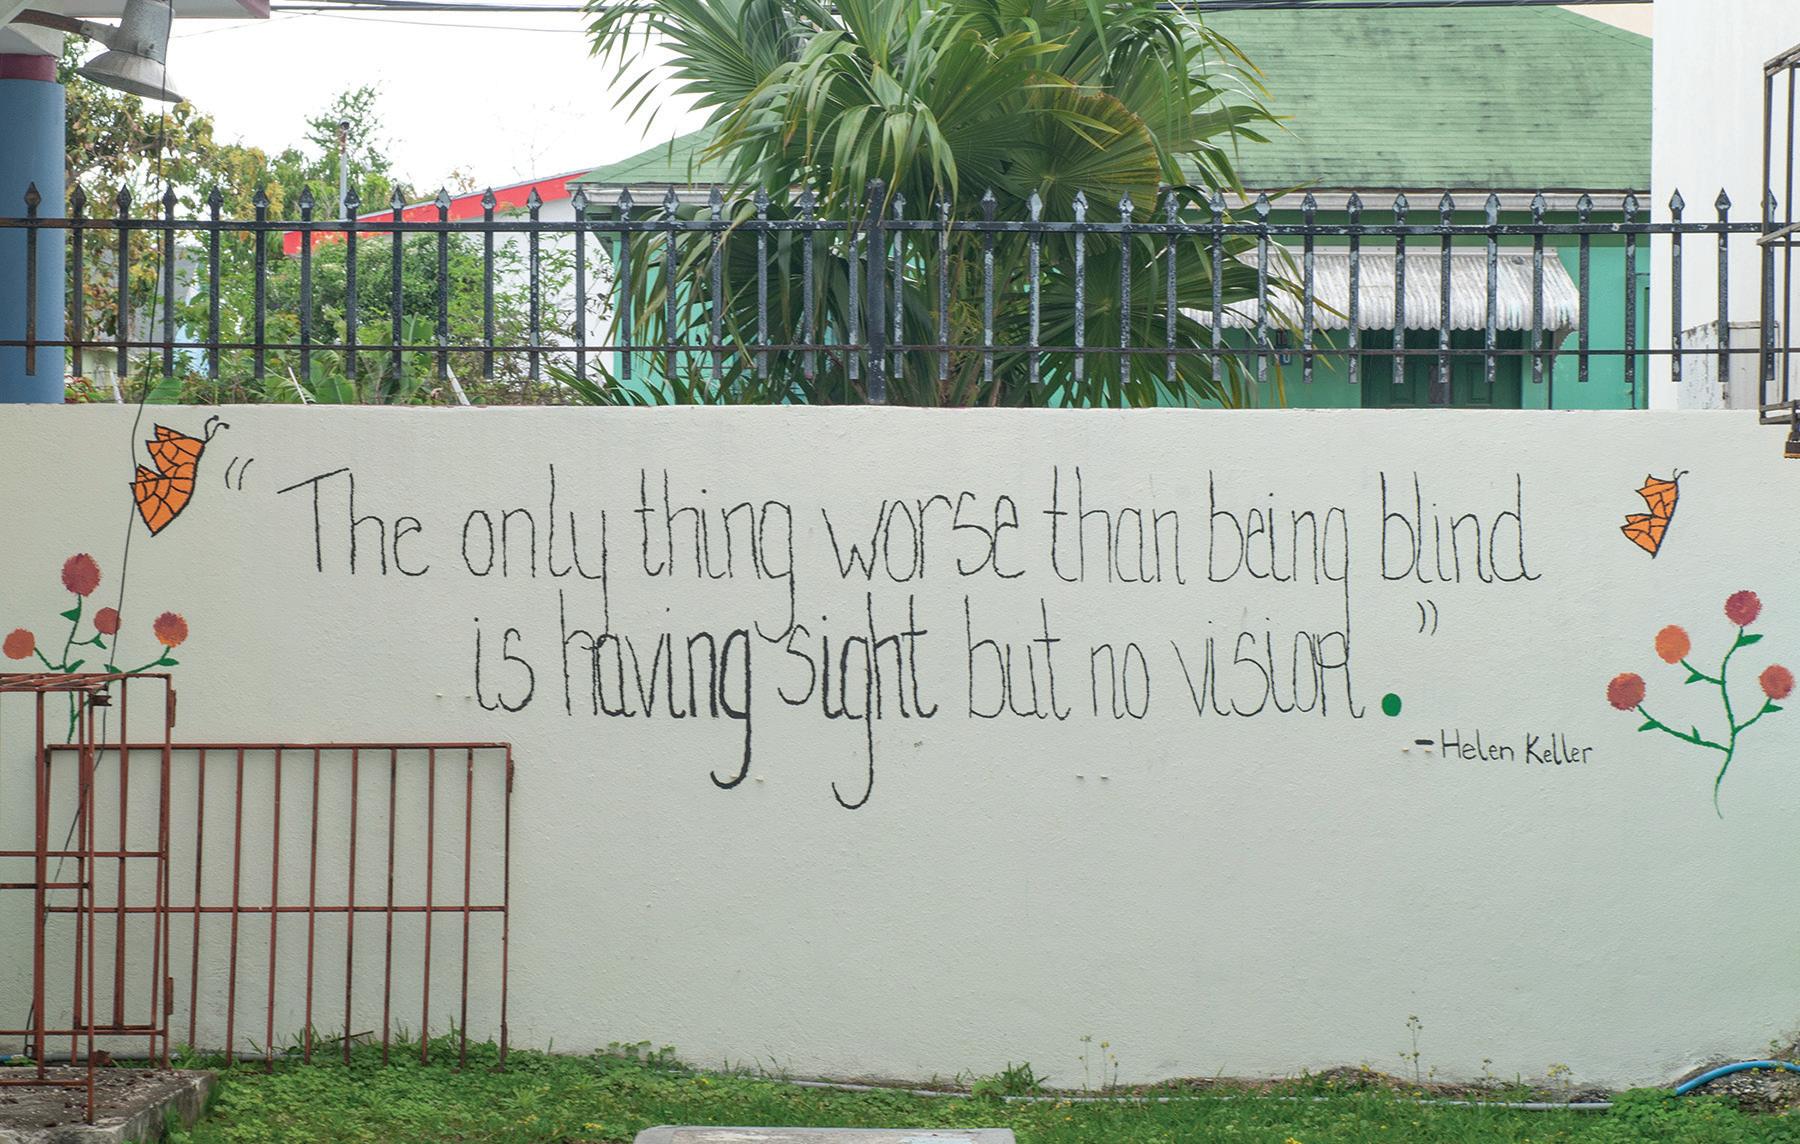 “The only thing worse than being blind
is having sight but no vision.”
-Helen Keller